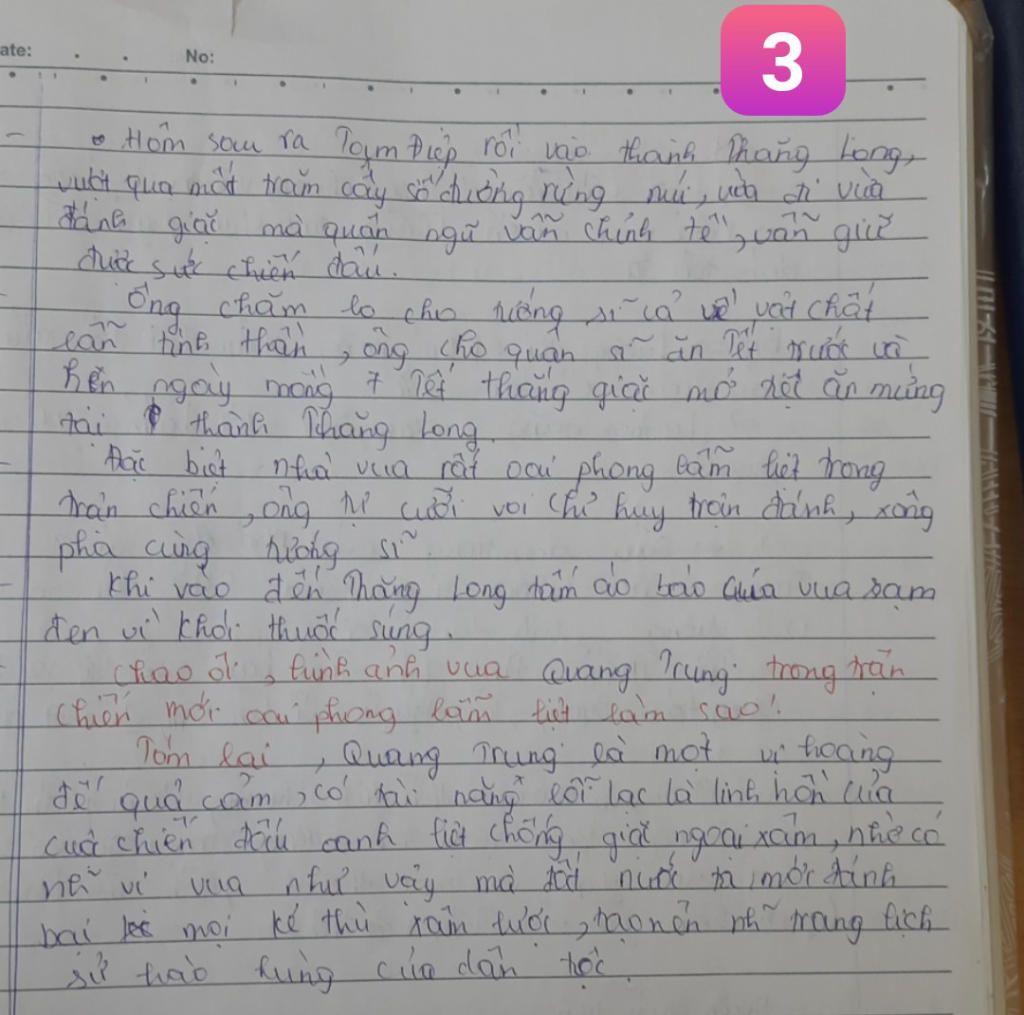 3
ate:
No:
Hôm sau ra Tam Điệp rồi vào thành Thăng Long,
vượt qua một trăm cây số đường rừng núi, vừa đi vừa
đánh giặc mà quân ngũ vẫn chỉnh tề, vẫn giữ
được sức chiến đấu.
Ông chăm lo cho tướng sĩ cả về vật chất
lẫn tinh thần, ông cho quân sĩ ăn Tết trước và
hẹn ngày mồng 7 Tết thắng giặc mở tiệc ăn mừng
tại thành Thăng Long.
Đặc biệt nhà vua rất oai phong lẫm liệt trong
trận chiến, ông tự cưỡi voi chỉ huy trận đánh, xông
pha cùng tướng sĩ
Khi vào đến Thăng Long tấm áo bào của vua sạm
đen vì khói thuốc súng.
Chao ôi, hình ảnh vua Quang Trung trong trận
chiến mới oai phong lẫm liệt làm sao!
Tóm lại, Quang Trung là một vị hoàng
đế quả cảm, có tài năng lỗi lạc là linh hồn của
cuộc chiến đấu oanh liệt chống giặc ngoại xâm, nhờ có
vị vua như vậy mà đất nước ta mới đánh
bại mọi kẻ thù xâm lược, tạo nên trang lịch
sử hào hùng của dân tộc.